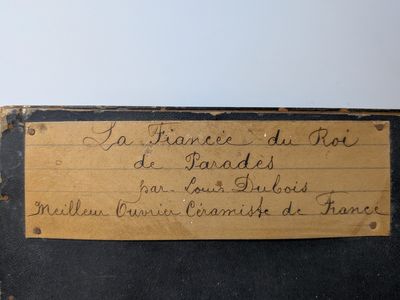 La Fiancée du Roi
de Parades
par Louis Dubois
Meilleur Ouvrier Céramiste de France